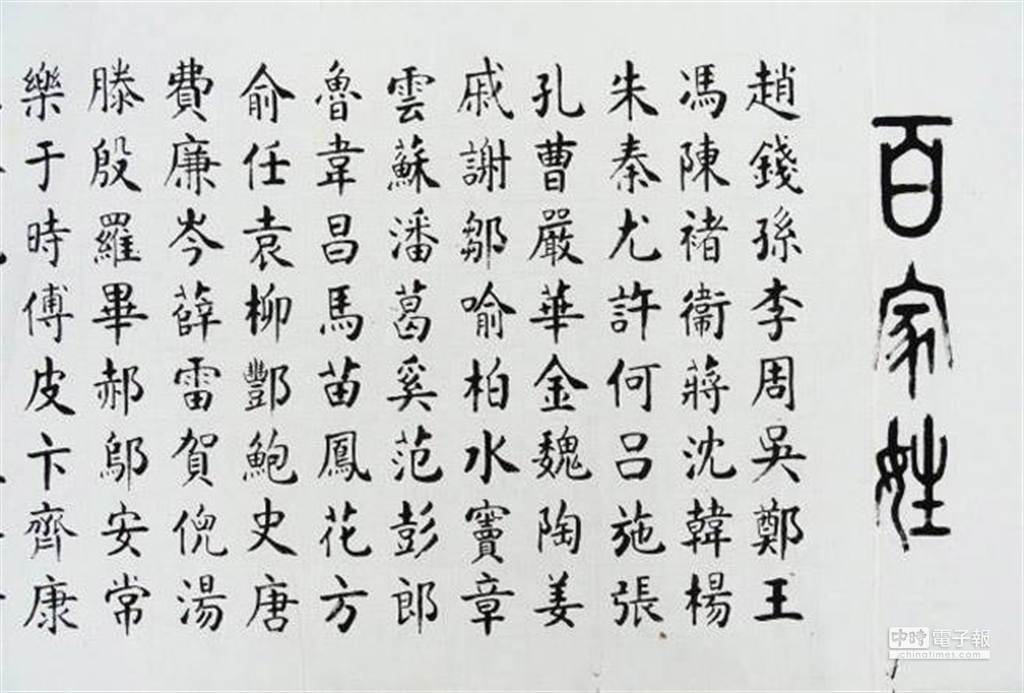 百家姓
趙錢孫李周吳鄭王
馮陳褚衞蔣沈韓楊
朱秦尤許何呂施張
孔曹嚴華金魏陶姜
戚謝鄒喻柏水竇章
雲蘇潘葛奚范彭郎
魯韋昌馬苗鳳花方
俞任袁柳酆鮑史唐
費廉岑薛雷賀倪湯
滕殷羅畢郝鄔安常
樂于時傅皮卞齊康
中時電子報
chinatimes.com